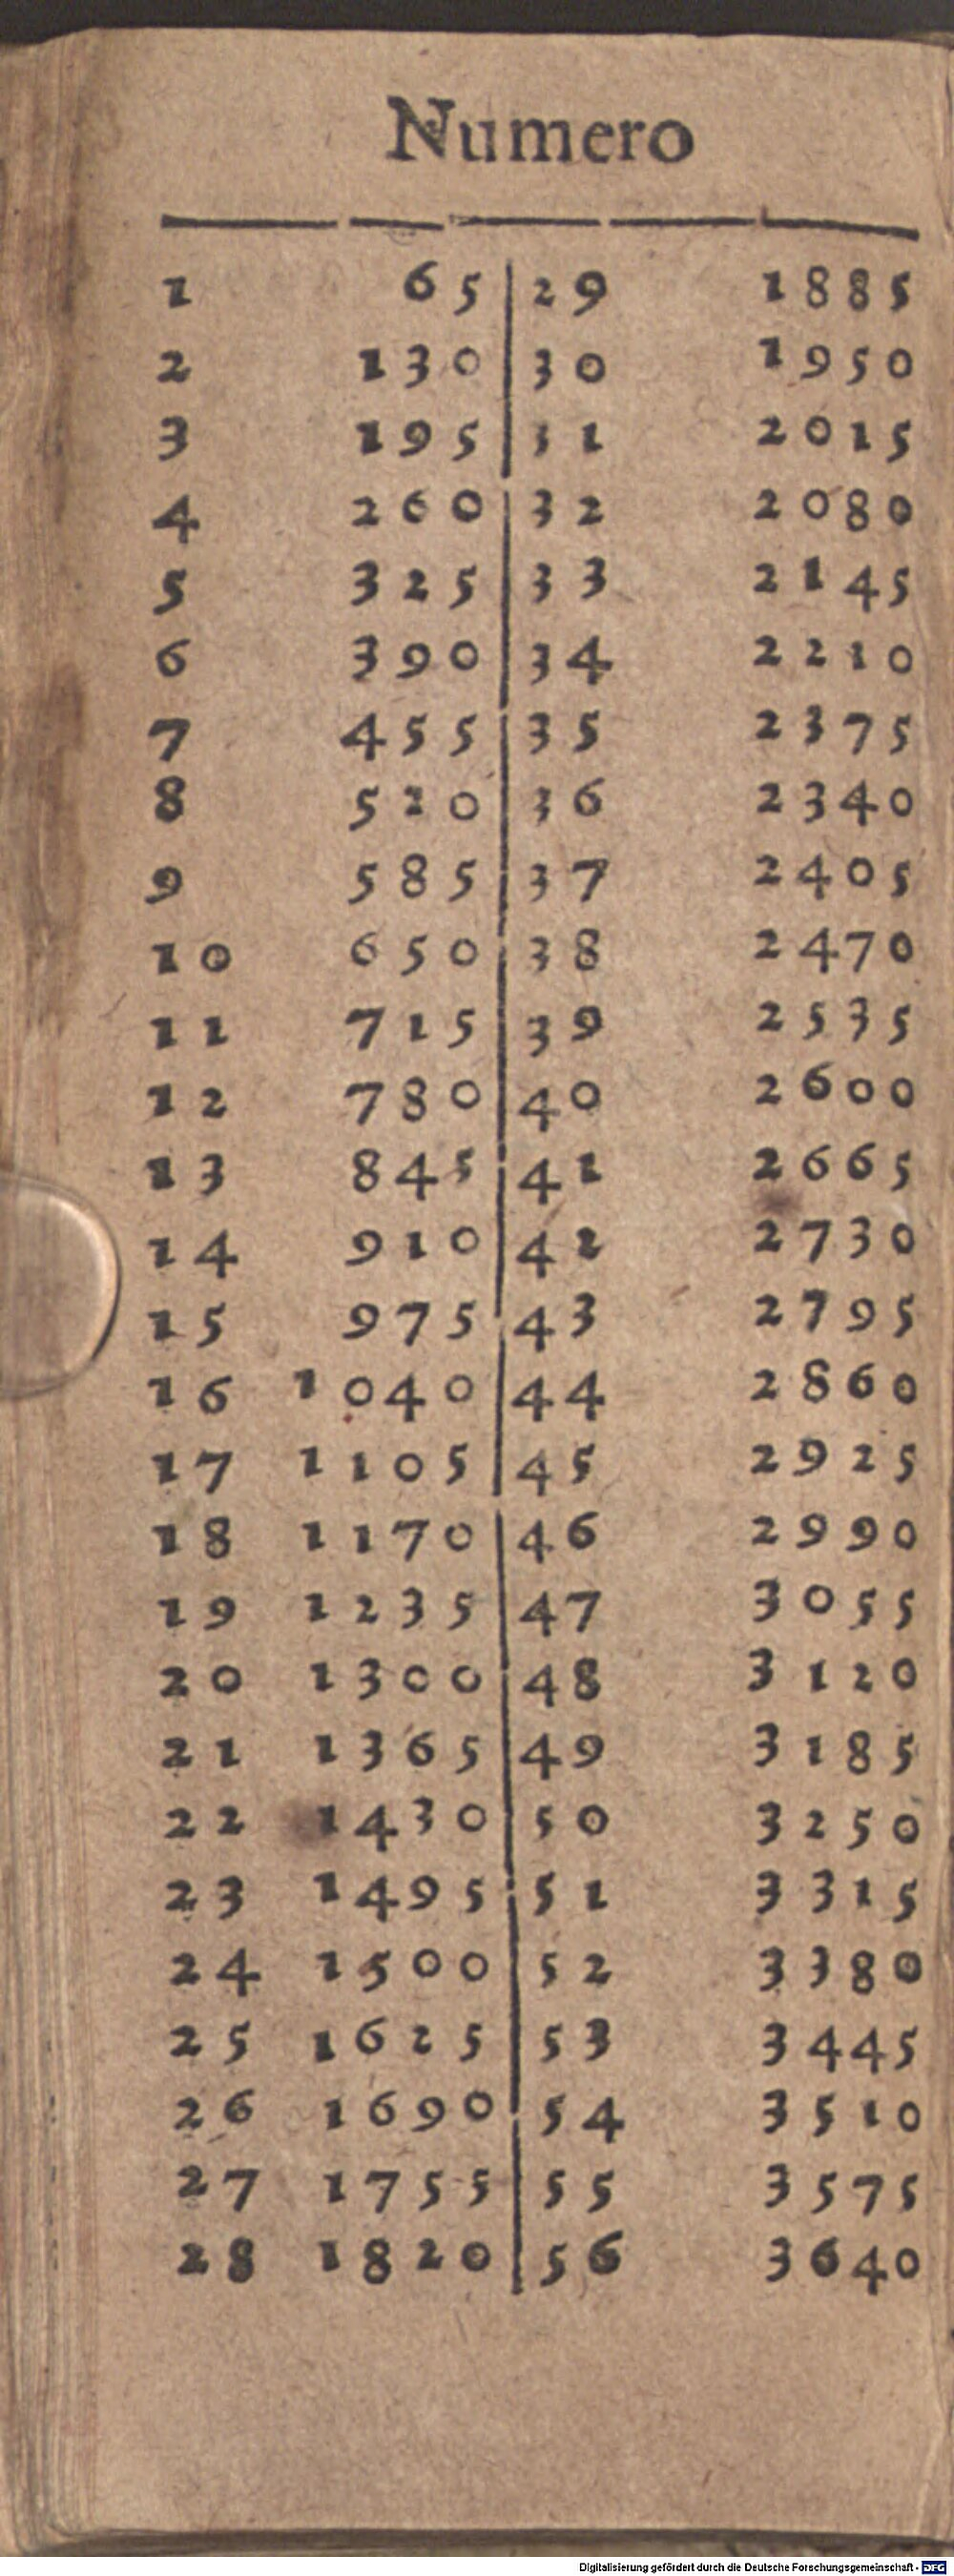 Numero
1 65 29 1885
2 130 30 1950
3 195 31 2015
4 260 32 2080
5 325 33 2145
6 390 34 2210
7 455 35 2375
8 520 36 2340
9 585 37 2405
10 650 38 2470
11 715 39 2535
12 780 40 2600
13 845 41 2665
14 910 42 2730
15 975 43 2795
16 1040 44 2860
17 1105 45 2925
18 1170 46 2990
19 1235 47 3055
20 1300 48 3120
21 1365 49 3185
22 1430 50 3250
23 1495 51 3315
24 1500 52 3380
25 1625 53 3445
26 1690 54 3510
27 1755 55 3575
28 1820 56 3640
Digitalisierung gefördert durch die Deutsche Forschungsgemeinschaft - DFG